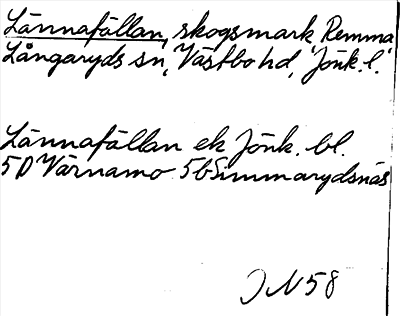 Lännafällan, skogsmark Remma
Långaryds sn, Västbo hd, Jönk. l.
Lännafällan ek Jönk. bl.
5D Värnamo 5b Simmarydsnäs
JN58